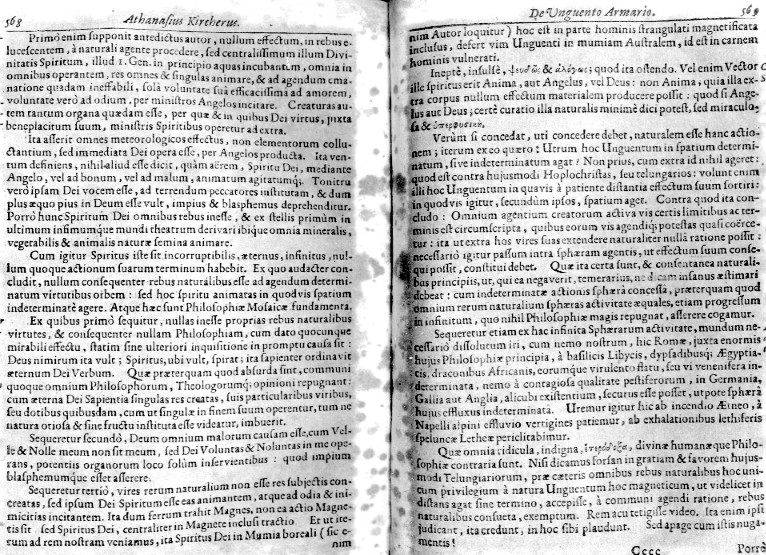 568 Athanasius Kircherus.
Primò enim supponit antedictus autor, nullum effectum, in rebus e-
lucescentem, à naturali agente procedere, sed centralissimum illum Divi-
nitatis Spiritum, illud 1. Gen. in principio aquas incubantem, omnia in
omnibus operantem, res omnes & singulas animare, & ad agendum ema-
natione quadam ineffabili, solâ voluntate suâ efficacissimâ ad amorem,
voluntate verò ad odium, per ministros Angelos incitare. Creaturas au-
tem tantum organa quædam esse, per quæ & in quibus Dei virtus, juxta
beneplacitum suum, ministris Spiritibus operetur ad extra.
Ita asserit omnes meteorologicos effectus, non elementorum collu-
ctantium, sed immediata Dei opera esse, per Angelos producta. Ita ven-
tum definiens, nihil aliud esse dicit, quàm aërem, Spiritu Dei, mediante
Angelo, vel ad bonum, vel ad malum, animatum agitatumq;. Tonitru
verò ipsam Dei vocem esse, ad terrendum peccatores institutam, & dum
plus æquo pius in Deum esse vult, impius & blasphemus deprehenditur.
Porrò hunc Spiritum Dei omnibus rebus inesse, & ex stellis primùm in
ultimum infimumque mundi theatrum derivari ibique omnia mineralis,
vegetabilis & animalis naturæ semina animare.
Cum igitur Spiritus iste sit incorruptibilis, æternus, infinitus, nul-
lum quoque actionum suarum terminum habebit. Ex quo audacter con-
cludit, nullum consequenter rebus naturalibus esse ad agendum determi-
natum virtutibus orbem: sed hoc spiritu animatas in quodvis spatium
indeterminatè agere. Atque hæc sunt Philosophiæ Mosaicæ fundamenta.
Ex quibus primò sequitur, nullas inesse proprias rebus naturalibus
virtutes, & consequenter nullam Philosophiam, cum dato quocunque
mirabili effectu, statim sine ulteriori inquisitione in promptu causa sit:
Deus nimirum ita vult; Spiritus, ubi vult, spirat; ita sapienter ordinavit
æternum Dei Verbum. Quæ præterquam quod absurda sint, communi
quoque omnium Philosophorum, Theologorumq; opinioni repugnant:
cum æterna Dei Sapientia singulas res creatas, suis particularibus viribus,
seu dotibus quibusdam, cum ut singulæ in finem suum operentur, tum ne
natura otiosa & sine fructu instituta esse videatur, imbuerit.
Sequeretur secundò, Deum omnium malorum causam esse, cum Vel-
le & Nolle meum non sit meum, sed Dei Voluntas & Noluntas in me ope-
rans, potentiis organorum loco solùm inservientibus: quod impium
blasphemumque esset asserere.
Sequeretur tertiò, vires rerum naturalium non esse rebus subjectis con-
creatas, sed ipsum Dei Spiritum esse eas animantem, atque ad odia & ini-
micitias incitantem. Ita dum ferrum trahit Magnes, non ea actio Magne-
tis sit sed Spiritus Dei, centraliter in Magnete inclusi tractio Et ut ite-
rum ad rem nostram veniamus, ita Spiritus Dei in Mumia boreali (sic e-
nim
De Unguento Armario. 569
nim Autor loquitur) hoc est in parte hominis strangulati magnetificata
inclusus, defert vim Unguenti in mumiam Australem, id est in carnem
hominis vulnerati.
Ineptè, insulsè, ψευδῶς & ἀλόγως; quod ita ostendo. Vel enim Vector
ille spiritus erit Anima, aut Angelus, vel Deus: non Anima; quia illa ex-
tra corpus nullum effectum materialem producere possit: quod si Ange-
lus aut Deus; certè curatio illa naturalis minimè dici potest, sed miraculo-
sa &
Verùm si concedat, uti concedere debet, naturalem esse hanc actio-
nem; iterum ex eo quæro: Utrum hoc Unguentum in spatium determi-
natum, sive indeterminatum agat? Non prius, cum extra id nihil ageret:
quod est contra hujusmodi Hoplochristas, seu telungarios: volunt enim
illi hoc Unguentum in quavis à patiente distantia effectum suum sortiri:
in quodvis igitur, secundùm ipsos, spatium aget. Contra quod ita con-
cludo: Omnium agentium creatorum activa vis certis limitibus ac ter-
minis est circumscripta, quibus eorum vis agendiq; potestas quasi coërce-
tur: ita ut extra hos vires suas extendere naturaliter nullâ ratione possit:
necessariò igitur passum intra sphæram agentis, ut effectum suum conse-
qui possit, constitui debet. Quæ ita certa sunt, & consentanea naturali-
bus principiis, ut, qui ea negaverit, temerarius, ne dicam insanus æstimari
debeat: cum indeterminatæ actionis sphæra concessâ, præterquam quod
omnium rerum naturalium sphæras activitatè æquales, etiam progressum
in infinitum, quo nihil Philosophiæ magis repugnat, asserere cogamur.
Sequeretur etiam ex hac infinita Sphærarum activitate, mundum ne-
cessariò dissolutum iri, cum nemo nostrum, hic Romæ, juxta enormis
hujus Philosophiæ principia, à basilicis Libycis, dypsadibusq; Ægyptia-
cis, draconibus Africanis, eorumque virulento flatu, seu vi venenifera in-
determinata, nemo à contagiosa qualitate pestiferorum, in Germania,
Gallia aut Anglia, alicubi existentium, securus esse posset, utpote sphærâ
hujus effluxus indeterminatâ. Uremur igitur hic ab incendio Ætneo, à
Napelli alpini effluvio vertigines patiemur, ab exhalationibus lethiferis
speluncæ Letheæ periclitabimur.
Quæ omnia ridicula, indigna, divinæ humanæque Philo-
sophiæ contraria sunt. Nisi dicamus forsan in gratiam & favorem hujus-
modi Telungiariorum, præ cæteris omnibus rebus naturalibus hoc uni-
cum privilegium à natura Unguentum hoc magneticum, ut videlicet in
distans agat sine termino, accepisse, à communi agendi ratione, rebus
naturalibus consueta, exemptum. Rem acu tetigisse video. Ita enim ipsi
judicant, ita credunt, in hoc sibi plaudunt. Sed apage cum istis nuga-
mentis!
Cccc Porrò